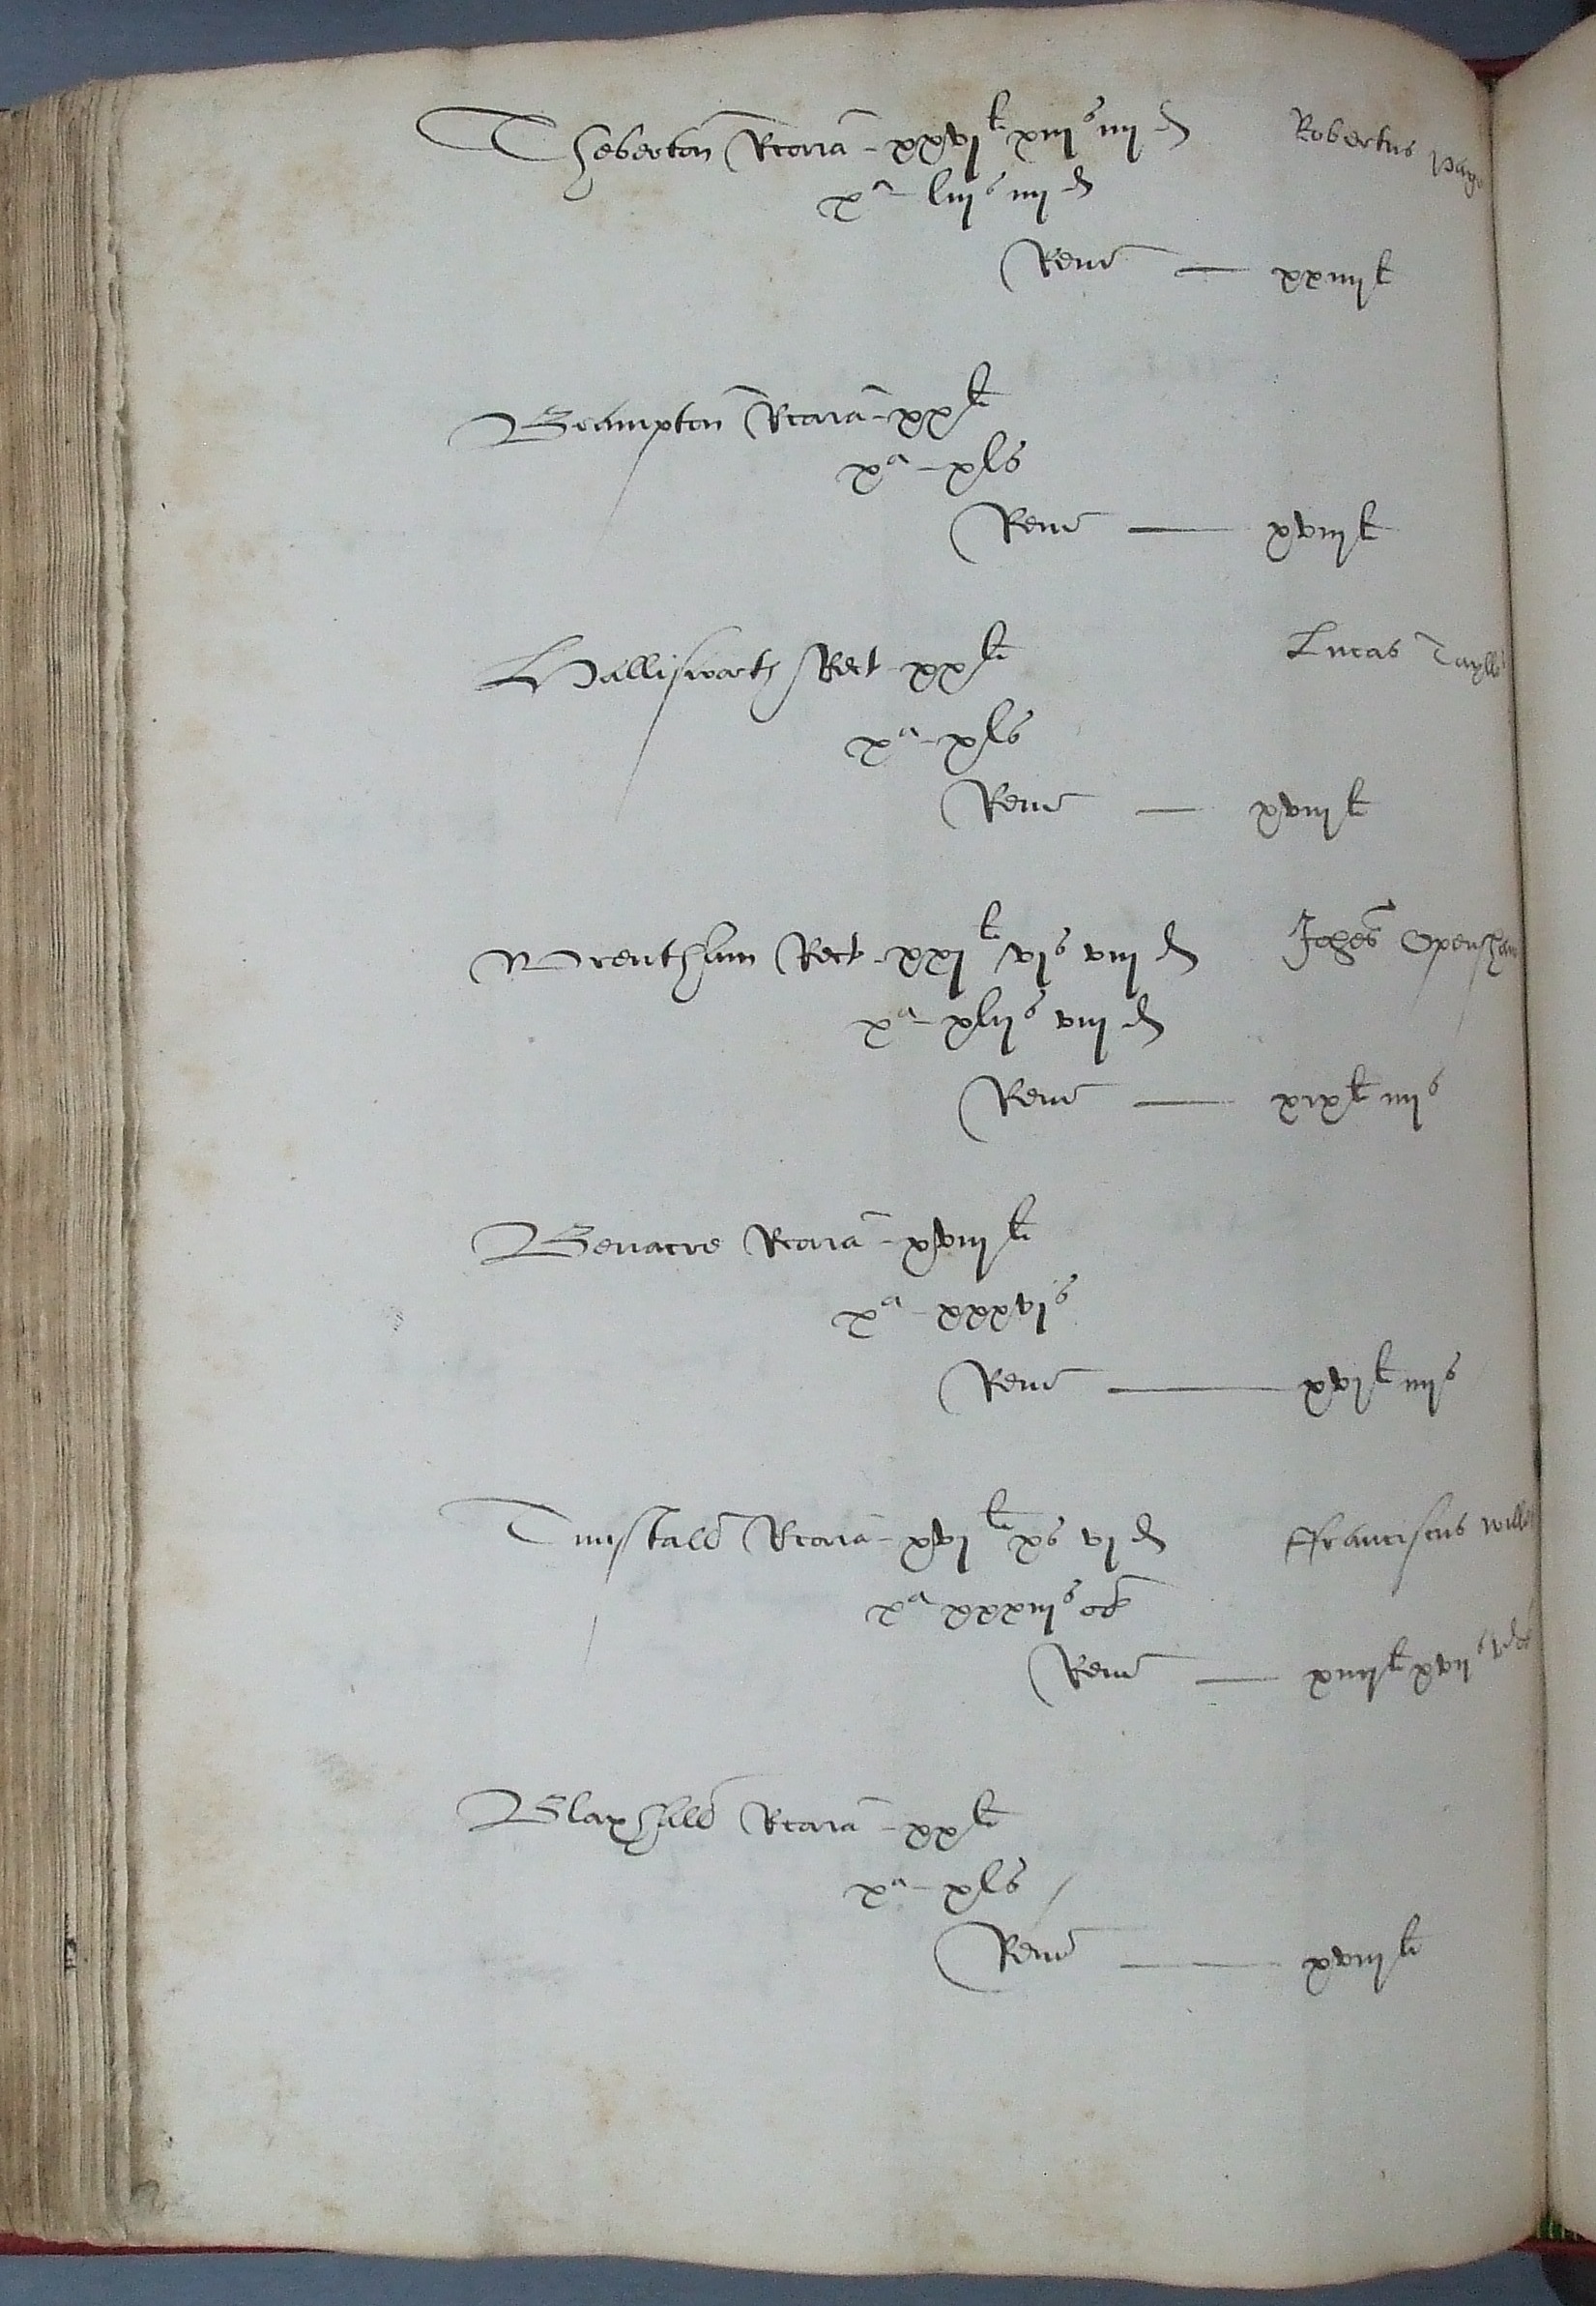 Theberton Rcoria - xxvj li xiij s iiij d Robertus Page
xa - liij s iiij d
Rem — xxiiij li
Brampton Rcoria - xx li
xa - xl s
Rem — xviij li
Hallisworth Rect - xx li Lucas Tayllo
xa - xl s
Rem — xviij li
Wrentham Rect - xxj li vj s viij d Johes Openshaw
xa - xlij s viij d
Rem — xix li iiij s
Benacre Rcoria - xviij li
xa - xxxvj s
Rem — xvj li iiij s
Tunstall Rcoria - xvj li xs vj d Franciscus Will
xa xxxiij s ob
Rem — xiiij li xvij s v d ob
Blaxhall Rcoria - xx li
xa - xl s
Rem — xviij li